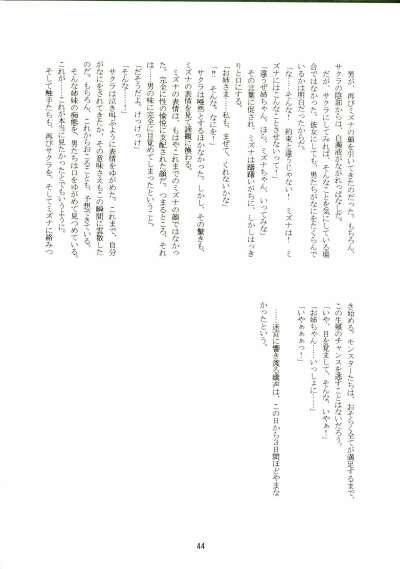 男が、再びミズナの顔を引いてきたのだった。もちろん、
サクラの陰部からは、白濁液がながれっぱなしだ。
だが、サクラにしてみれば、そんなことを気にしている場
合ではなかった。彼女にしても、男たちがなにをたくらんで
いるかは明白だったからだ。
「な……そんな!　約束と違うじゃない!　ミズナは!　ミ
ズナにはこんなことさせないって!」
「違うぜ姉ちゃん。ほら、ミズナちゃん、いってみな」
その言葉に促され、ミズナは躊躇いがちに、しかしはっき
りと口にする。
「お姉さま……私も、まぜて、くれないかな」
「!!　そんな、なにを!」
サクラは唖然とするほかなかった。しかし、その驚きも、
ミズナの表情を見て諦観に換わる。
ミズナの表情は、もはやこれまでのミズナの顔ではなかっ
た。完全に性の愉悦に支配された顔だ。つまるところ、それ
は……男の味に完全に目覚めてしまったということ。
「だそうだよ。けっけっけっ」
「そんな……」
サクラは泣き叫ぶように表情をゆがめた。これまで、自分
がなにをされてきたか、その意味さえもこの瞬間に霧散した
のだ。もちろん、これからおころことも、予想できている。
そんな姉妹の痴態を、男たちは口をゆがめて見つめている。
これが……これが本当に見たかったとでもいうように。
そして触手たちも、再びサクラを、そしてミズナに絡みつ
き始める。モンスターたちは、おそらく全てが満足するまで、
この生贄のチャンスを逃すことはないだろう。
「いや、目を覚まして、そんな、いやぁ!」
「お姉ちゃん……いっしょに……」
「いやぁぁぁっ!」
……迷宮に響き渡る嬌声は、この日から3日間ほどやまな
かったという。
44